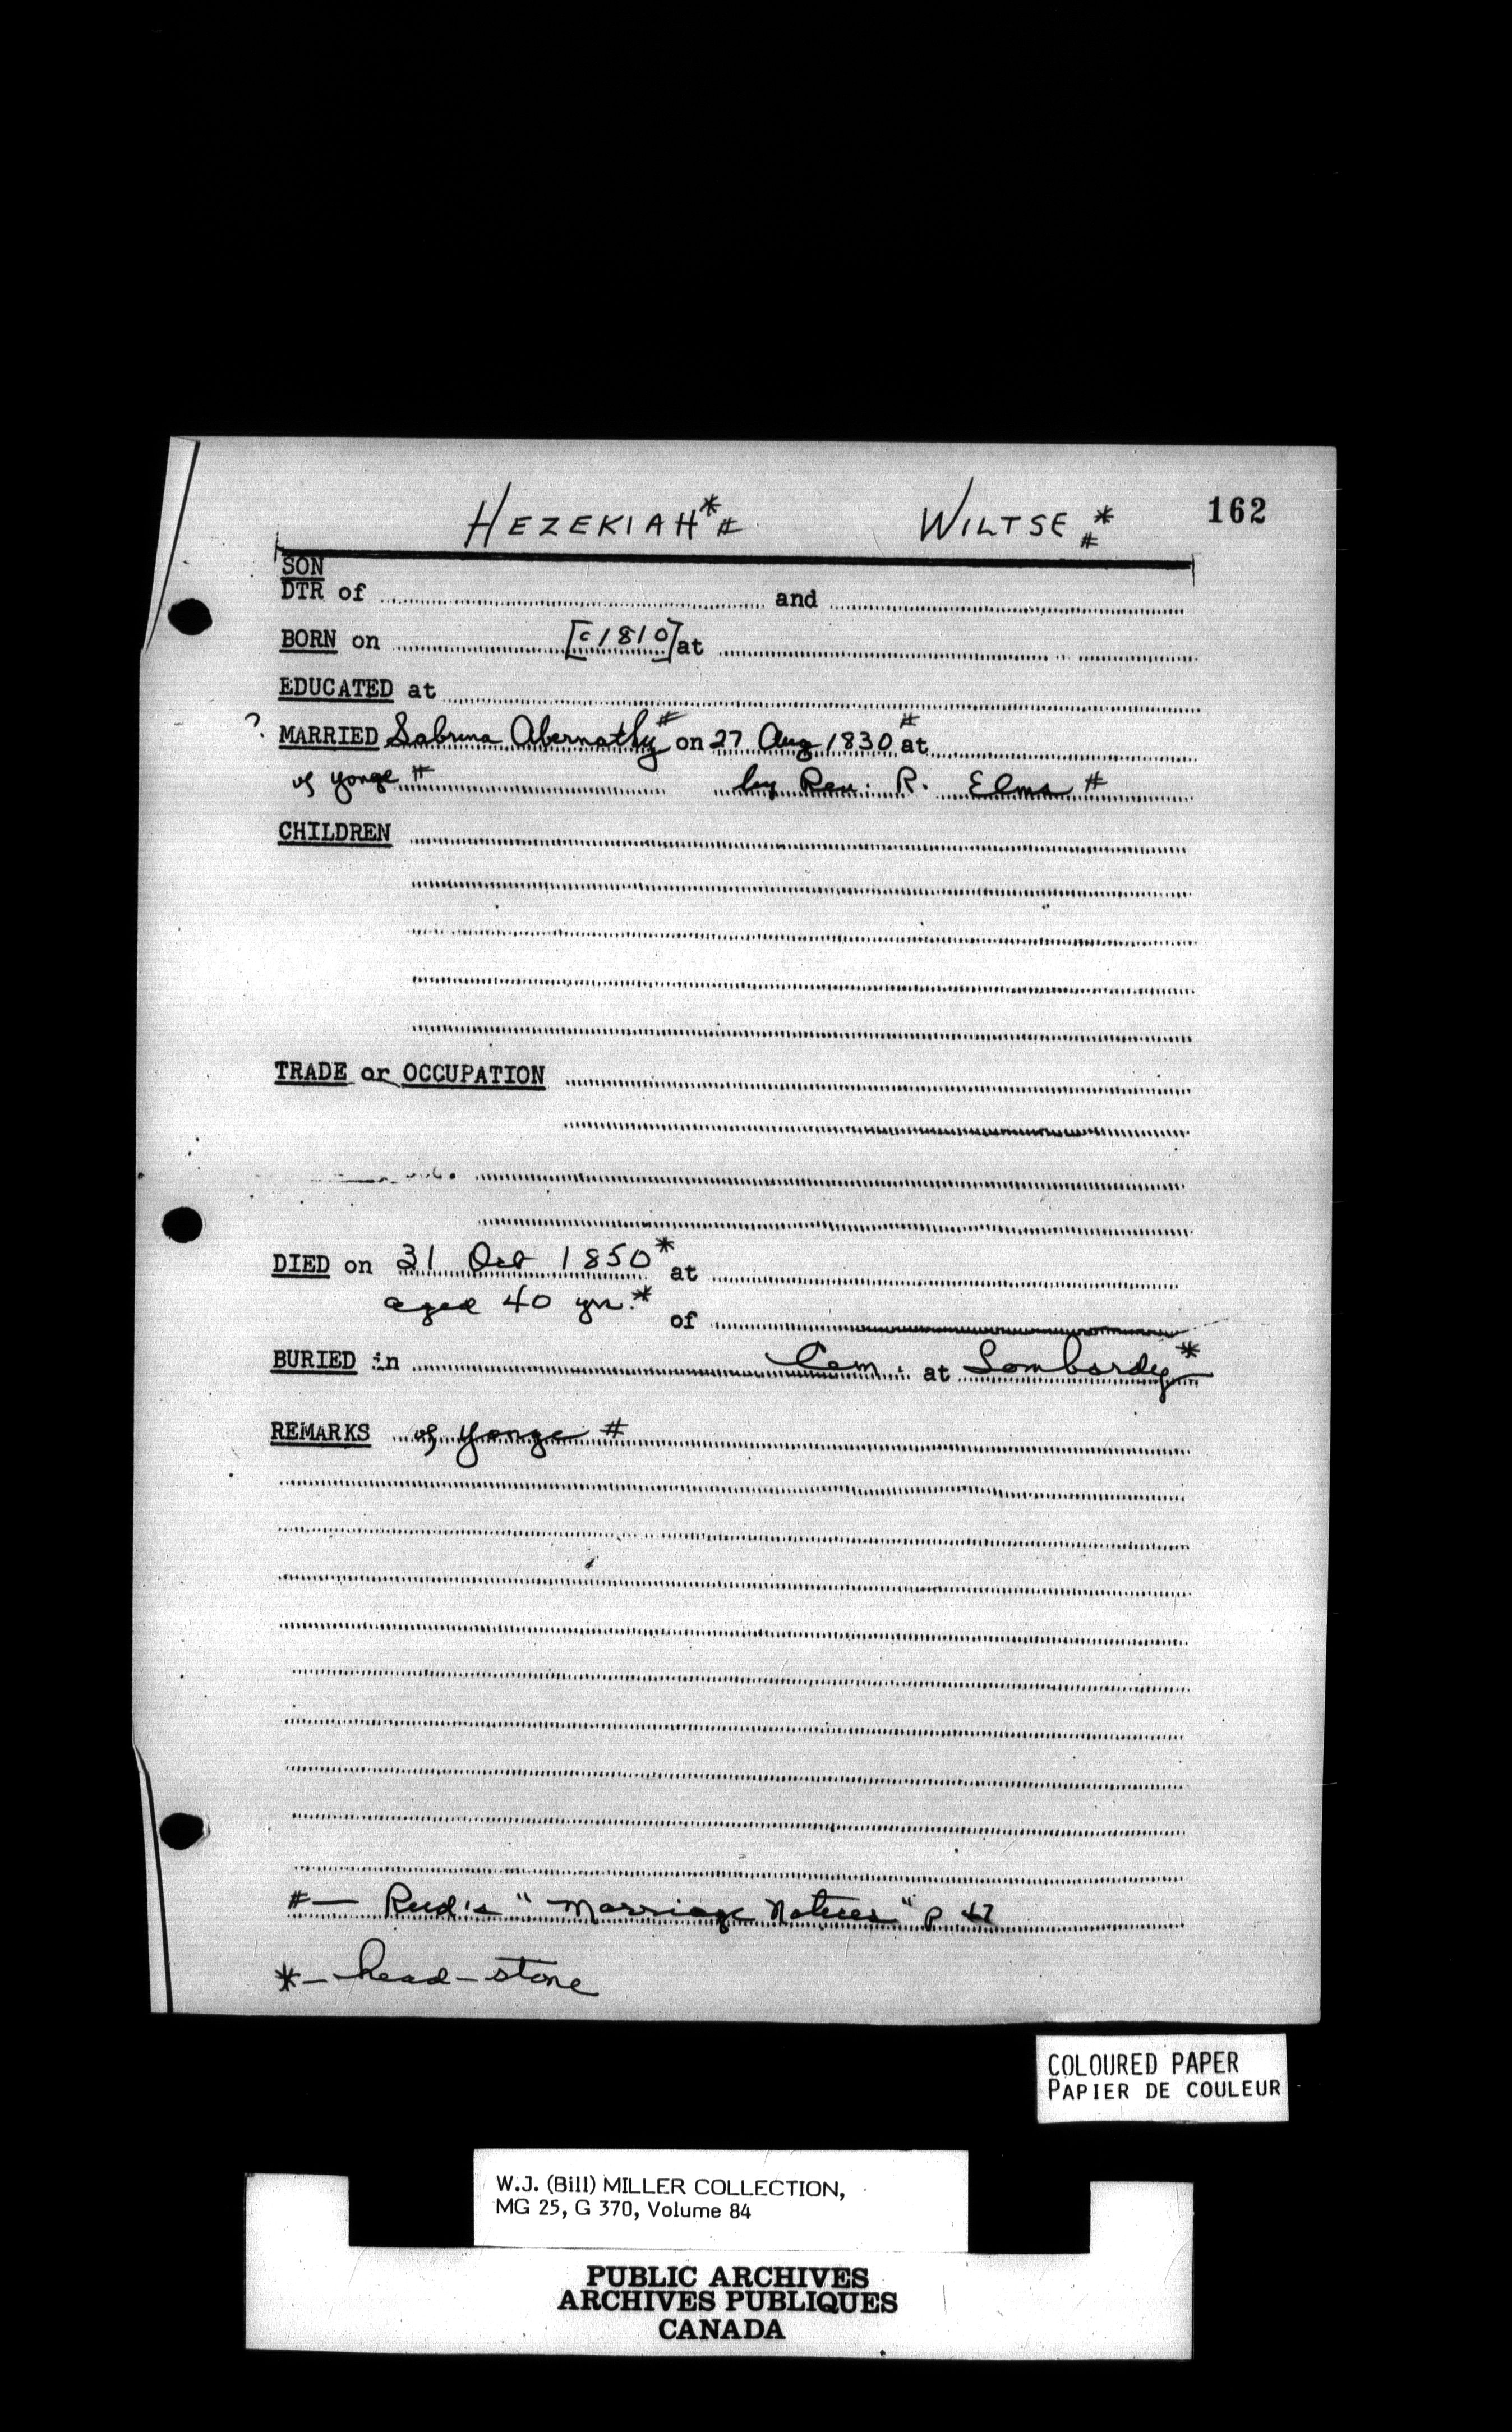 HEZEKIAH*# WILTSE#* 162
SON
DTR of and
BORN on [c1810] at
EDUCATED at
? MARRIED Sabrina Abernathy# on 27 Aug 1830# at
of Yonge # by Rev. R. Elms #
CHILDREN
TRADE or OCCUPATION
DIED on 31 Oct 1850* at
aged 40 yr.* of
BURIED in Cem. at Lombardy*
REMARKS of Yonge #
#— Reid's "Marriage Notices" p
*— head-stone
COLOURED PAPER
PAPIER DE COULEUR
W.J. (Bill) MILLER COLLECTION,
MG 25, G 370, Volume 84
PUBLIC ARCHIVES
ARCHIVES PUBLIQUES
CANADA